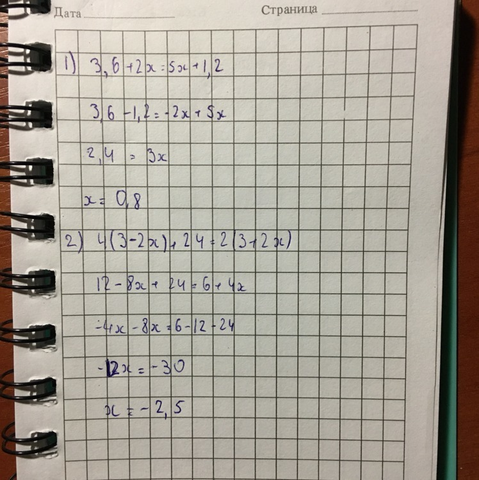 Дата Страница
1) 3,6+2x=5x+1,2
3,6-1,2=-2x+5x
2,4 = 3x
x= 0,8
2) 4(3-2x)+24=2(3+2x)
12-8x+24=6+4x
-4x-8x=6-12-24
-12x=-30
x=-2,5